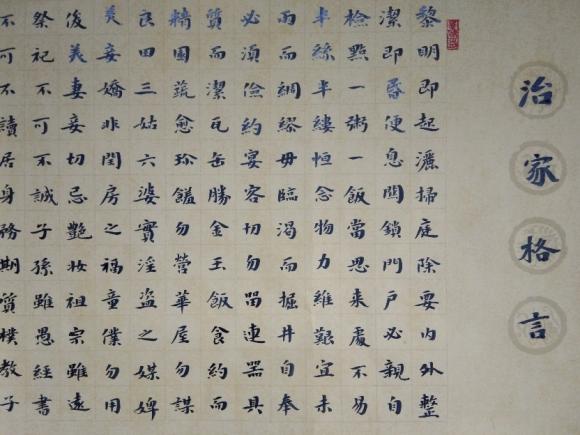 治家格言
黎明即起灑掃庭除要內外整
潔即昏便息關鎖門戶必親自
檢點一粥一飯當思來處不易
半絲半縷恒念物力維艱宜未
雨而綢繆毋臨渴而掘井自奉
必須儉約宴客切勿留連器具
質而潔瓦缶勝金玉飯食約而
精園蔬愈珍饈勿營華屋勿謀
良田三姑六婆實淫盜之媒婢
美妾嬌非閨房之福童僕勿用
後美妻妾切忌艷妝祖宗雖遠
祭祀不可不誠子孫雖愚經書
不可不讀居身務期質樸教子